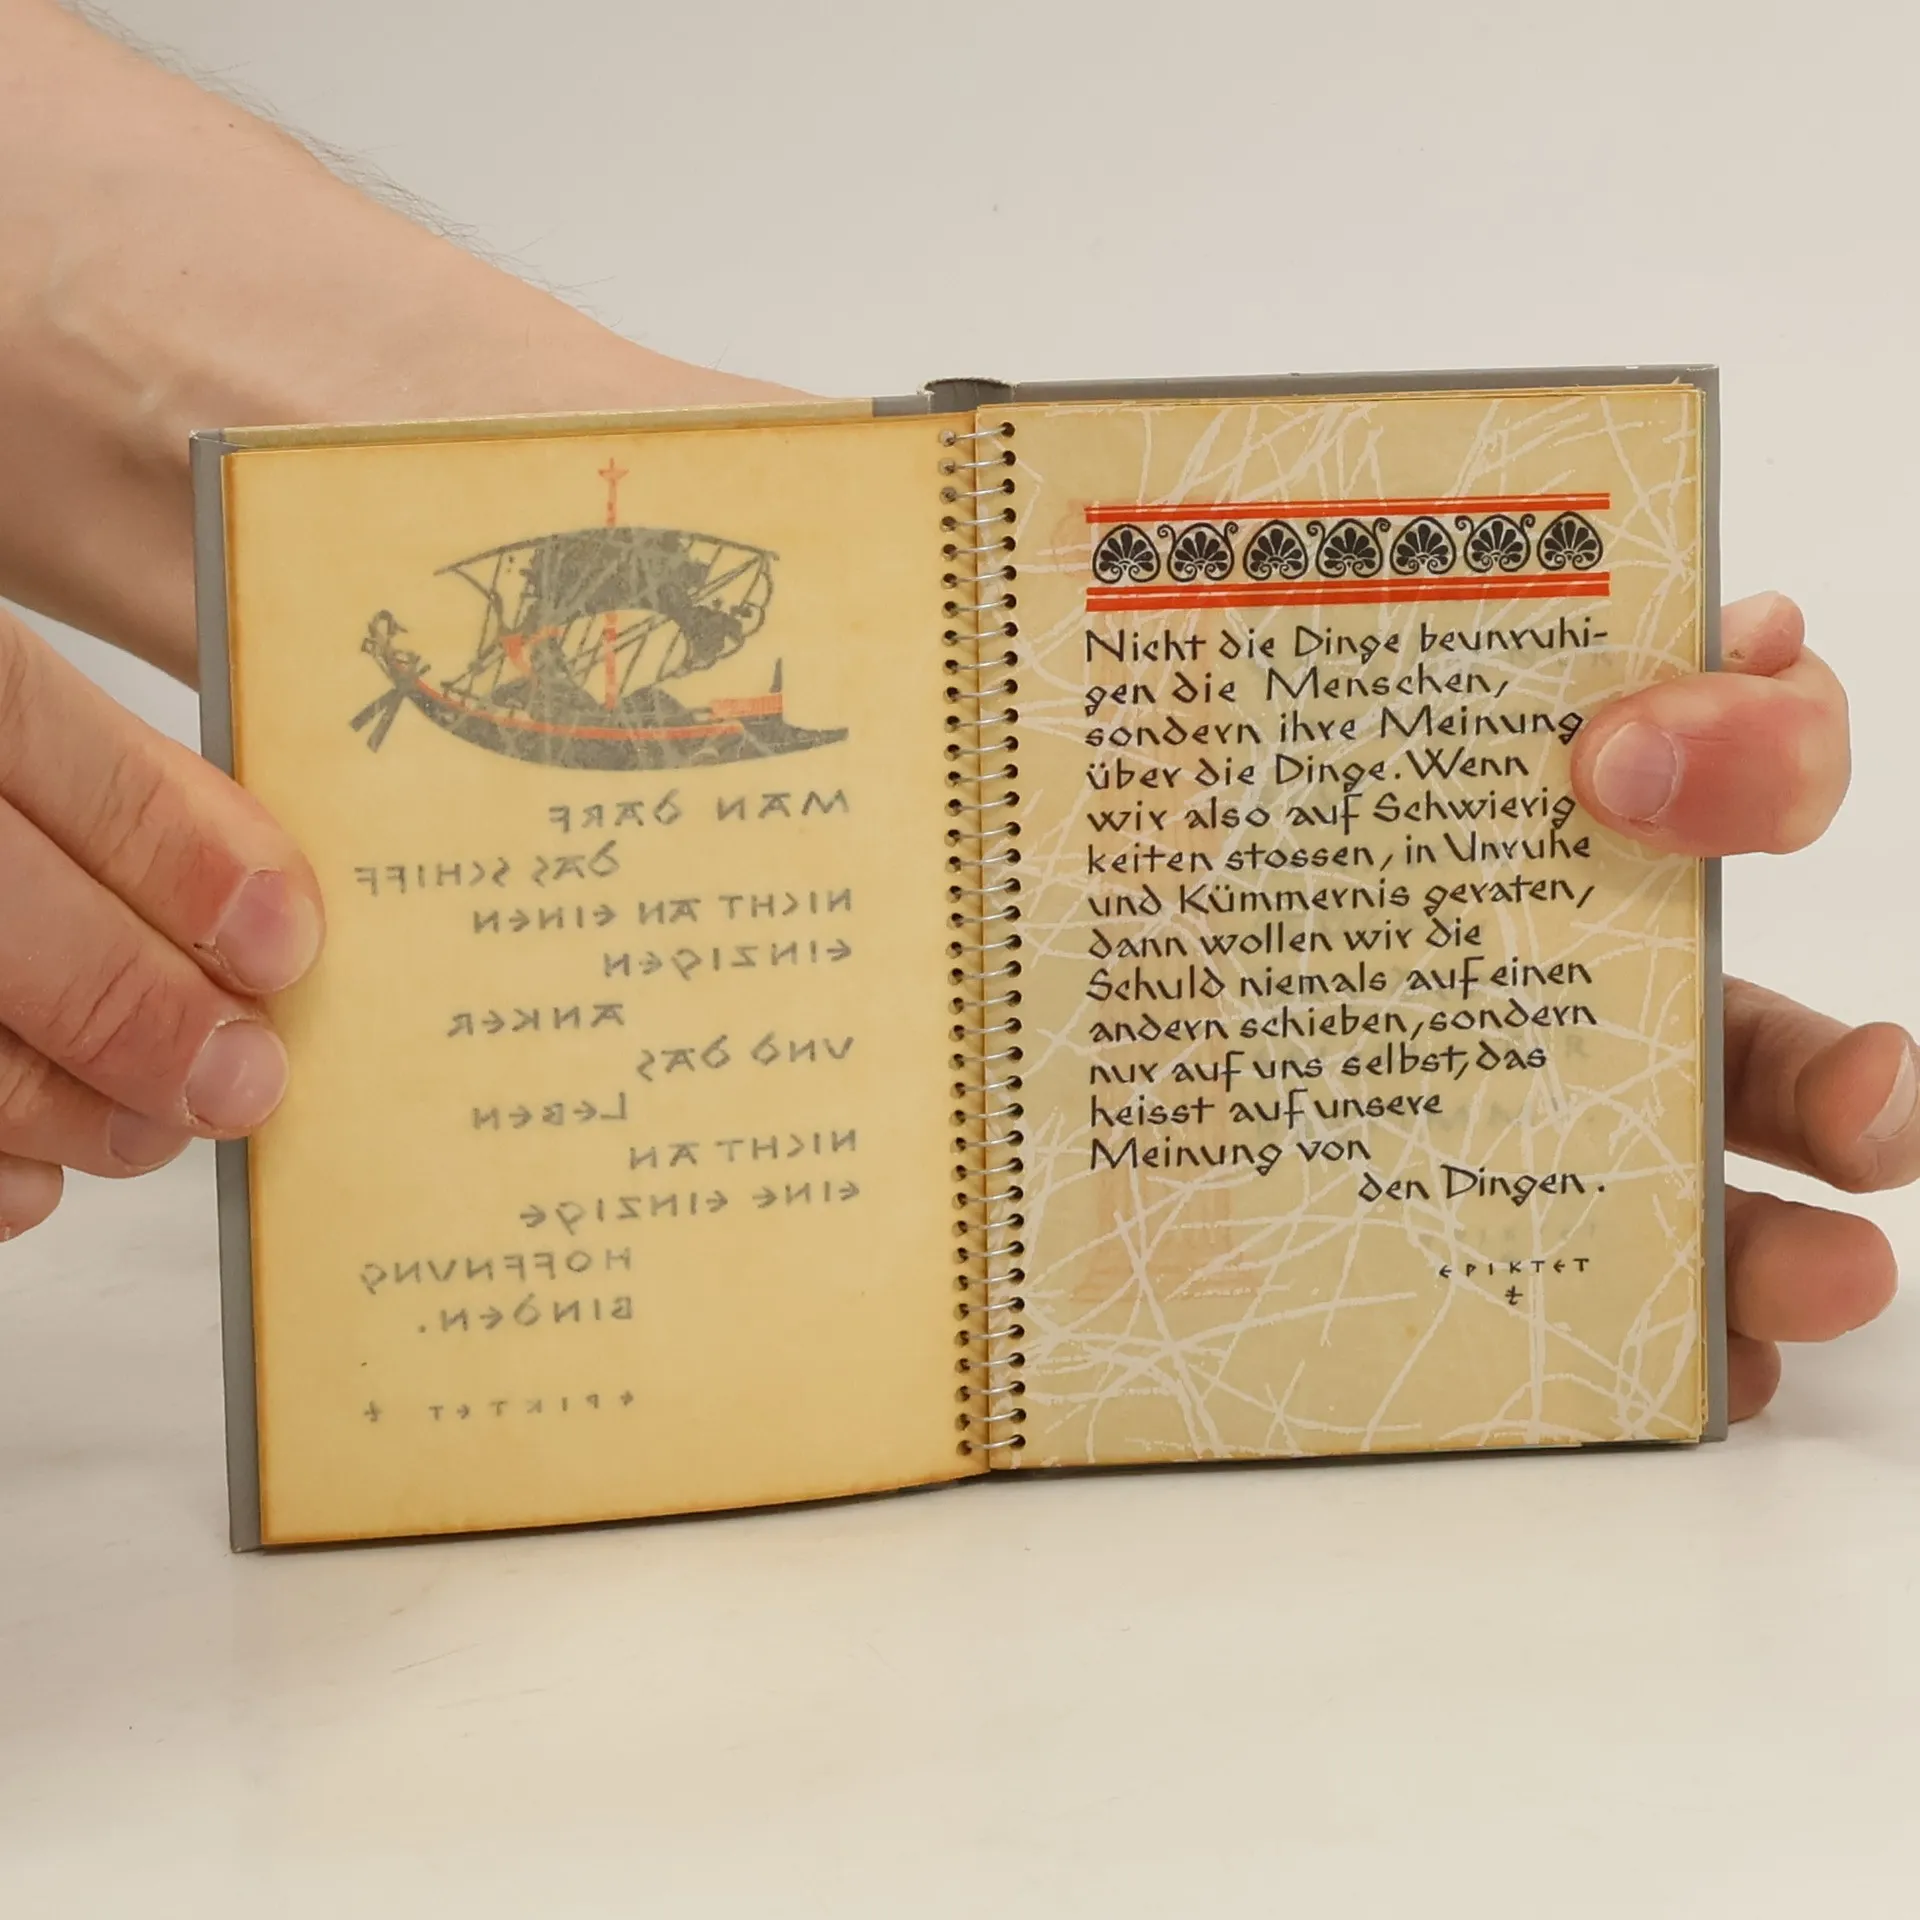 MAN DARF
DAS SCHIFF
NICHT AN EINEN
EINZIGEN
ANKER
UND DAS
LEBEN
NICHT AN
EINE EINZIGE
HOFFNUNG
BINDEN.
EPIKTET
Nicht die Dinge beunruhi-
gen die Menschen,
sondern ihre Meinung
über die Dinge. Wenn
wir also auf Schwierig
keiten stossen, in Unruhe
und Kümmernis geraten,
dann wollen wir die
Schuld niemals auf einen
andern schieben, sondern
nur auf uns selbst, das
heisst auf unsere
Meinung von
den Dingen.
EPIKTET